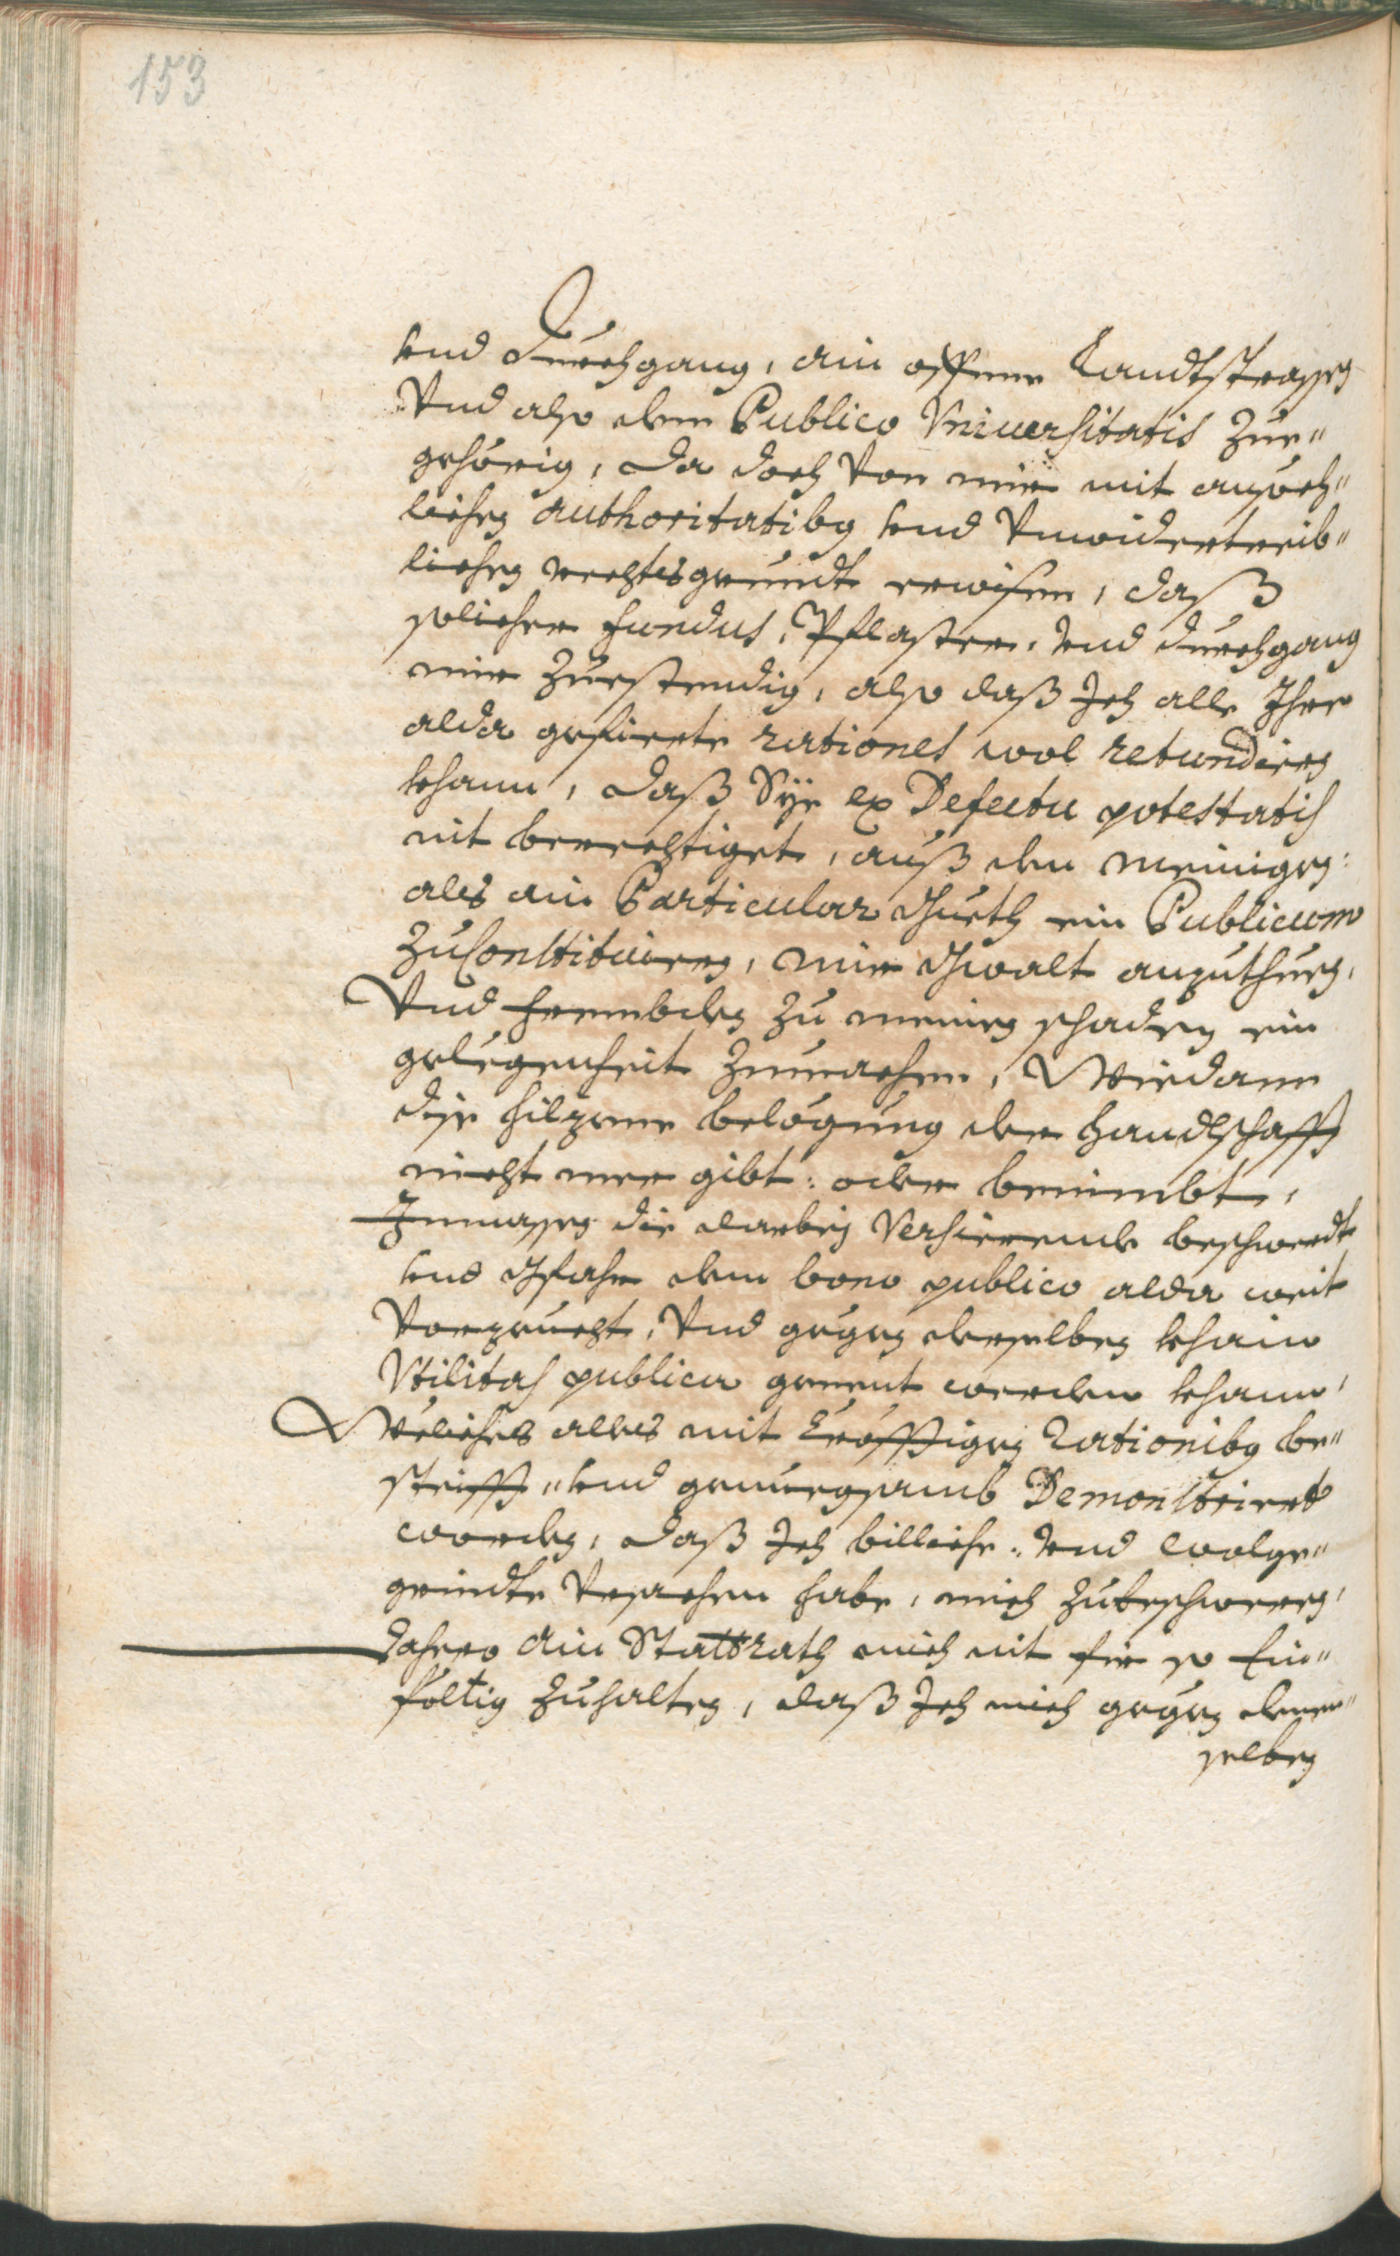 153
und Durchgang, ain offene Landtstrassen
Vnd also dem Publico Vniuersitatis zue„
gehörig, da doch von mir mit ansech„
lichen authoritatibus vnd Vnwidertreib„
lichen rechtsgründt erwisen, daß
solicher fundus, Pflaster, vnd durchgang
mir zuestendig, also daß Ich alle Ihre
alda gefüerte rationes wol retundirn
khann, daß Sÿe ex Defectu potestatis
nit berechtiget, auß den meinigen:
als ain Particular Gueth ein Publicum
zu Constituiren, mir Gwalt anzuthuen,
Vnd frembden zu meinen schaden ein
gelegenheit zumachen, Wiedann
dise hilzene belögung der handlschafft
nicht mer gibt: oder benimbt,
Inmassen die darbey Versierende beschwerdt
vnd Gfahr dem bono publico alda weit
Vorzeucht, Vnd gegen derselben khain
Vtilitas publica genent werden khann,
Weliches alles mit kröfftigen Rationibus be„
steifft„ vnd genuegsamb Demonstriert
worden, daß Ich billiche„ vnd wolge„
gründte Vrsachen habe, mich zubeschweren,
dahero ain Stattrath mich nit für so Ein„
föltig zuhalten, daß Ich mich gegen denen„
selben